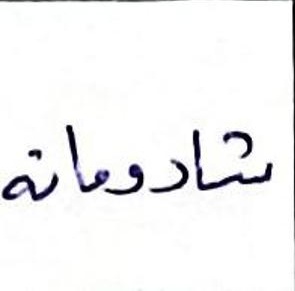 شادومانه